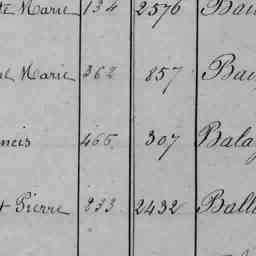 Marie 134 2576
Marie 362 857
ncis 466 307 Bala
t Pierre 833 2432 Ball